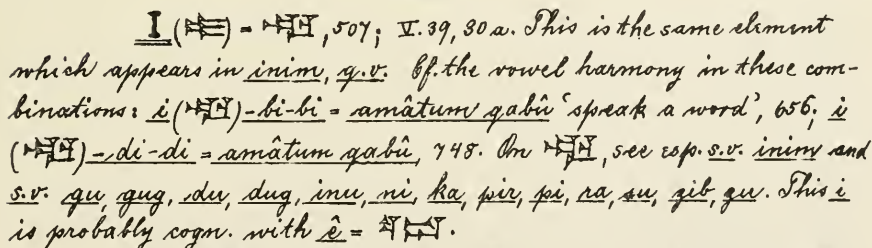 I (𒄿) = 𒅗, 507; V. 39, 30 a. This is the same element
which appears in inim, q.v. Cf. the vowel harmony in these com-
binations: i (𒅗)-bi-bi = amâtum qabû ‘speak a word’, 656; i
(𒅗)-di-di = amâtum qabû, 748. On 𒅗, see esp. s.v. inim and
s.v. gu, gug, du, dug, inu, ni, ka, pir, pi, ra, su, zib, zu. This i
is probably cogn. with ê = 𒌓𒁺.